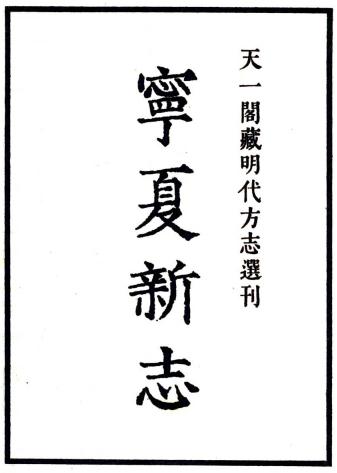 天一閣藏明代方志選刊
寧夏新志